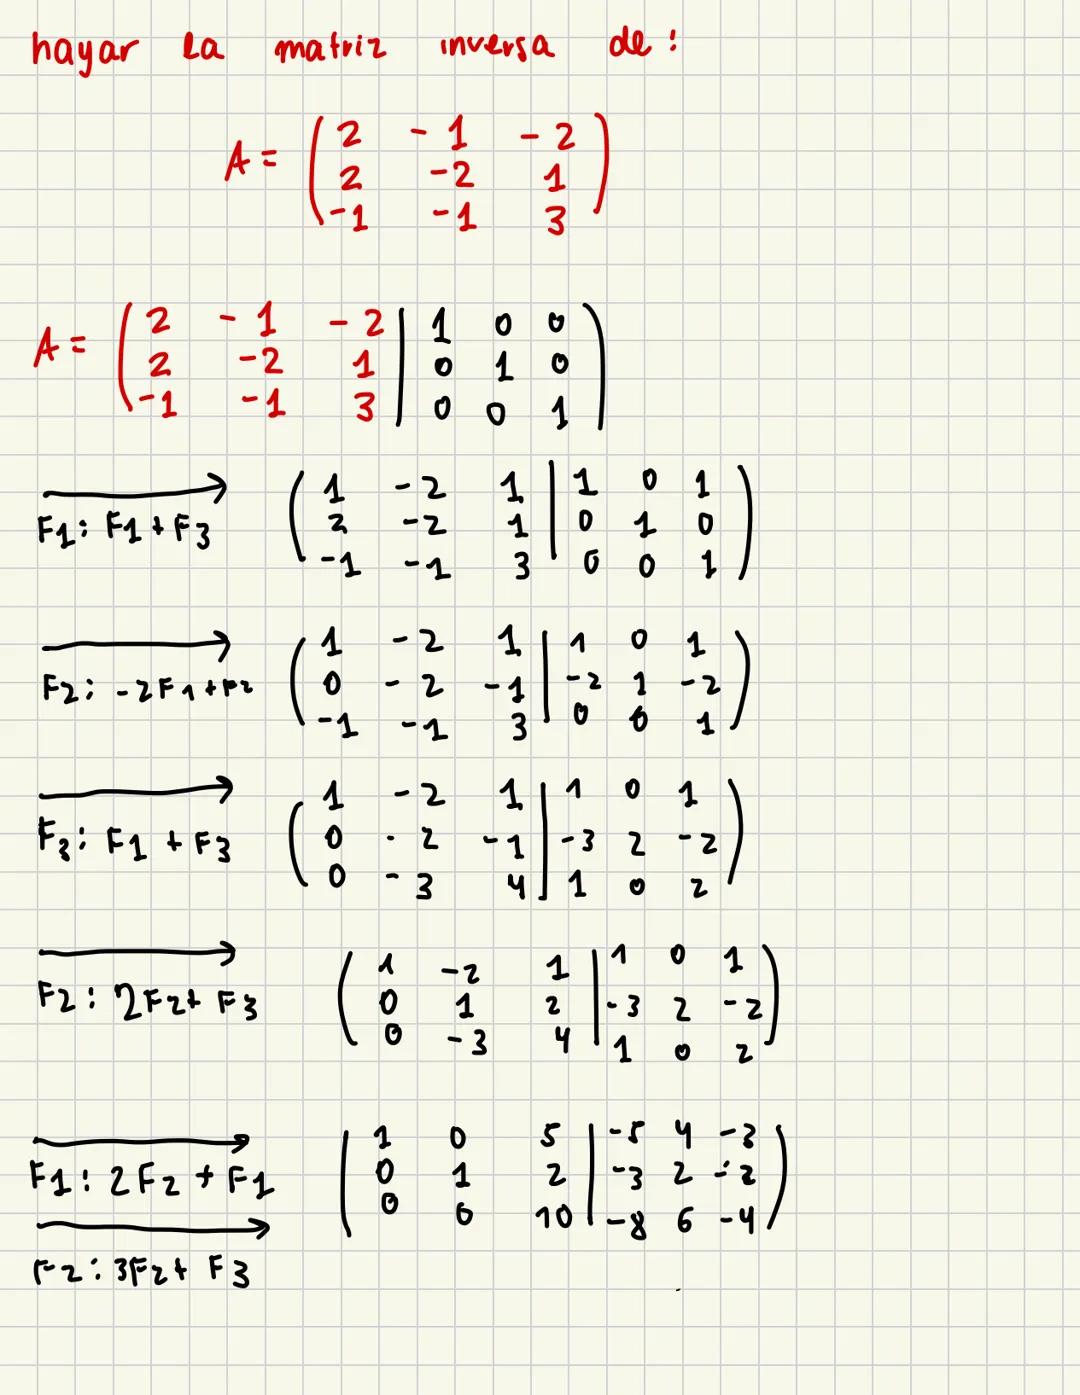 hayar la matriz inversa de :
A = ( 2 -1 -2
2 -2 1
-1 -1 3 )
A = ( 2 -1 -2 | 1 0 0
2 -2 1 | 0 1 0
-1 -1 3 | 0 0 1 )
F1: F1 + F3 ( 1 -2 1 | 1 0 1
2 -2 1 | 0 1 0
-1 -1 3 | 0 0 1 )
F2: -2F1+F2 ( 1 -2 1 | 1 0 1
0 -2 -1 | -2 1 -2
-1 -1 3 | 0 0 1 )
F3: F1 + F3 ( 1 -2 1 | 1 0 1
0 -2 -1 | -3 2 -2
0 -3 4 | 1 0 2 )
F2: 2F2+ F3 ( 1 -2 1 | 1 0 1
0 1 2 | -3 2 -2
0 -3 4 | 1 0 2 )
F1: 2F2 + F1 ( 1 0 5 | -5 4 -3
0 1 2 | -3 2 -2
0 0 10 | -8 6 -4 )
F2: 3F2+ F3